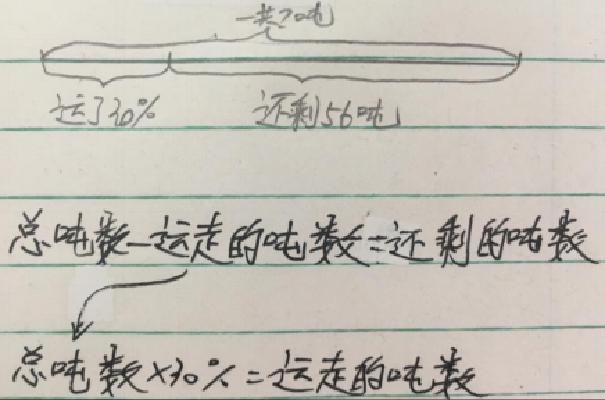 一共?吨
运了30% 还剩56吨
总吨数-运走的吨数=还剩的吨数
总吨数×30%=运走的吨数